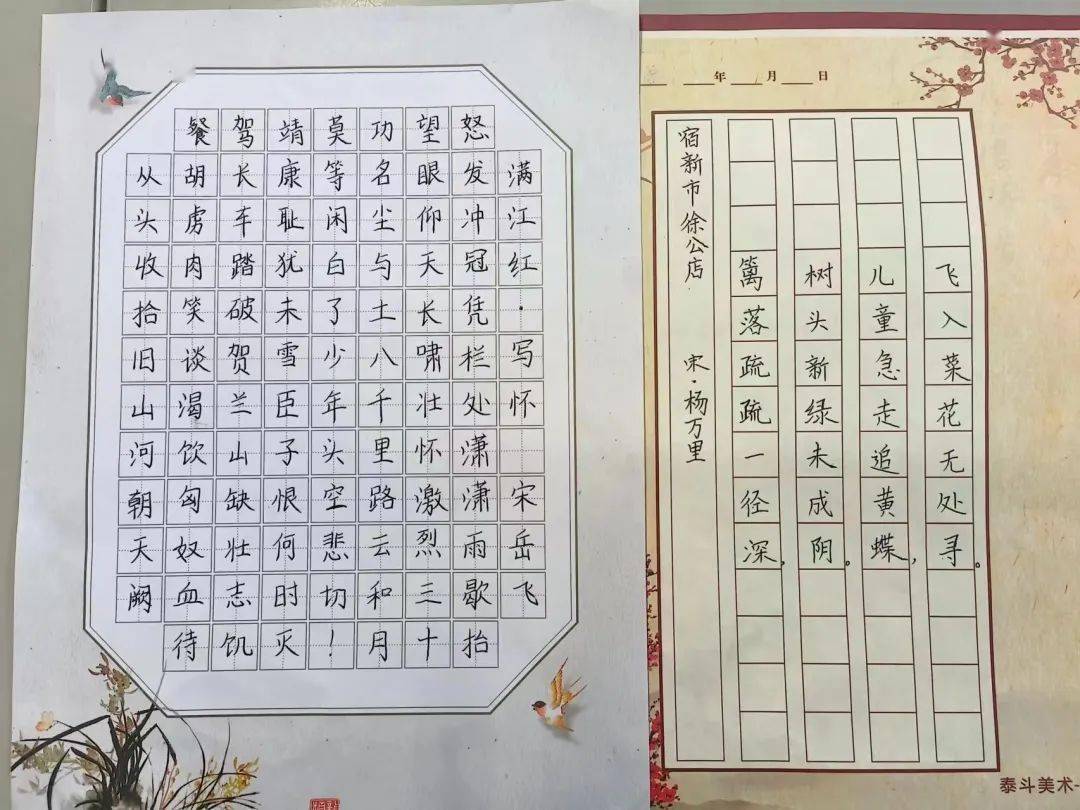 满江红·写怀 宋岳飞
怒发冲冠凭栏处潇潇雨歇抬
望眼仰天长啸壮怀激烈三十
功名尘与土八千里路云和月
莫等闲白了少年头空悲切!
靖康耻犹未雪臣子恨何时灭
驾长车踏破贺兰山缺壮志饥
餐胡虏肉笑谈渴饮匈奴血待
从头收拾旧山河朝天阙
年 月 日
宿新市徐公店 宋·杨万里
篱落疏疏一径深,
树头新绿未成阴。
儿童急走追黄蝶,
飞入菜花无处寻。
泰斗美术